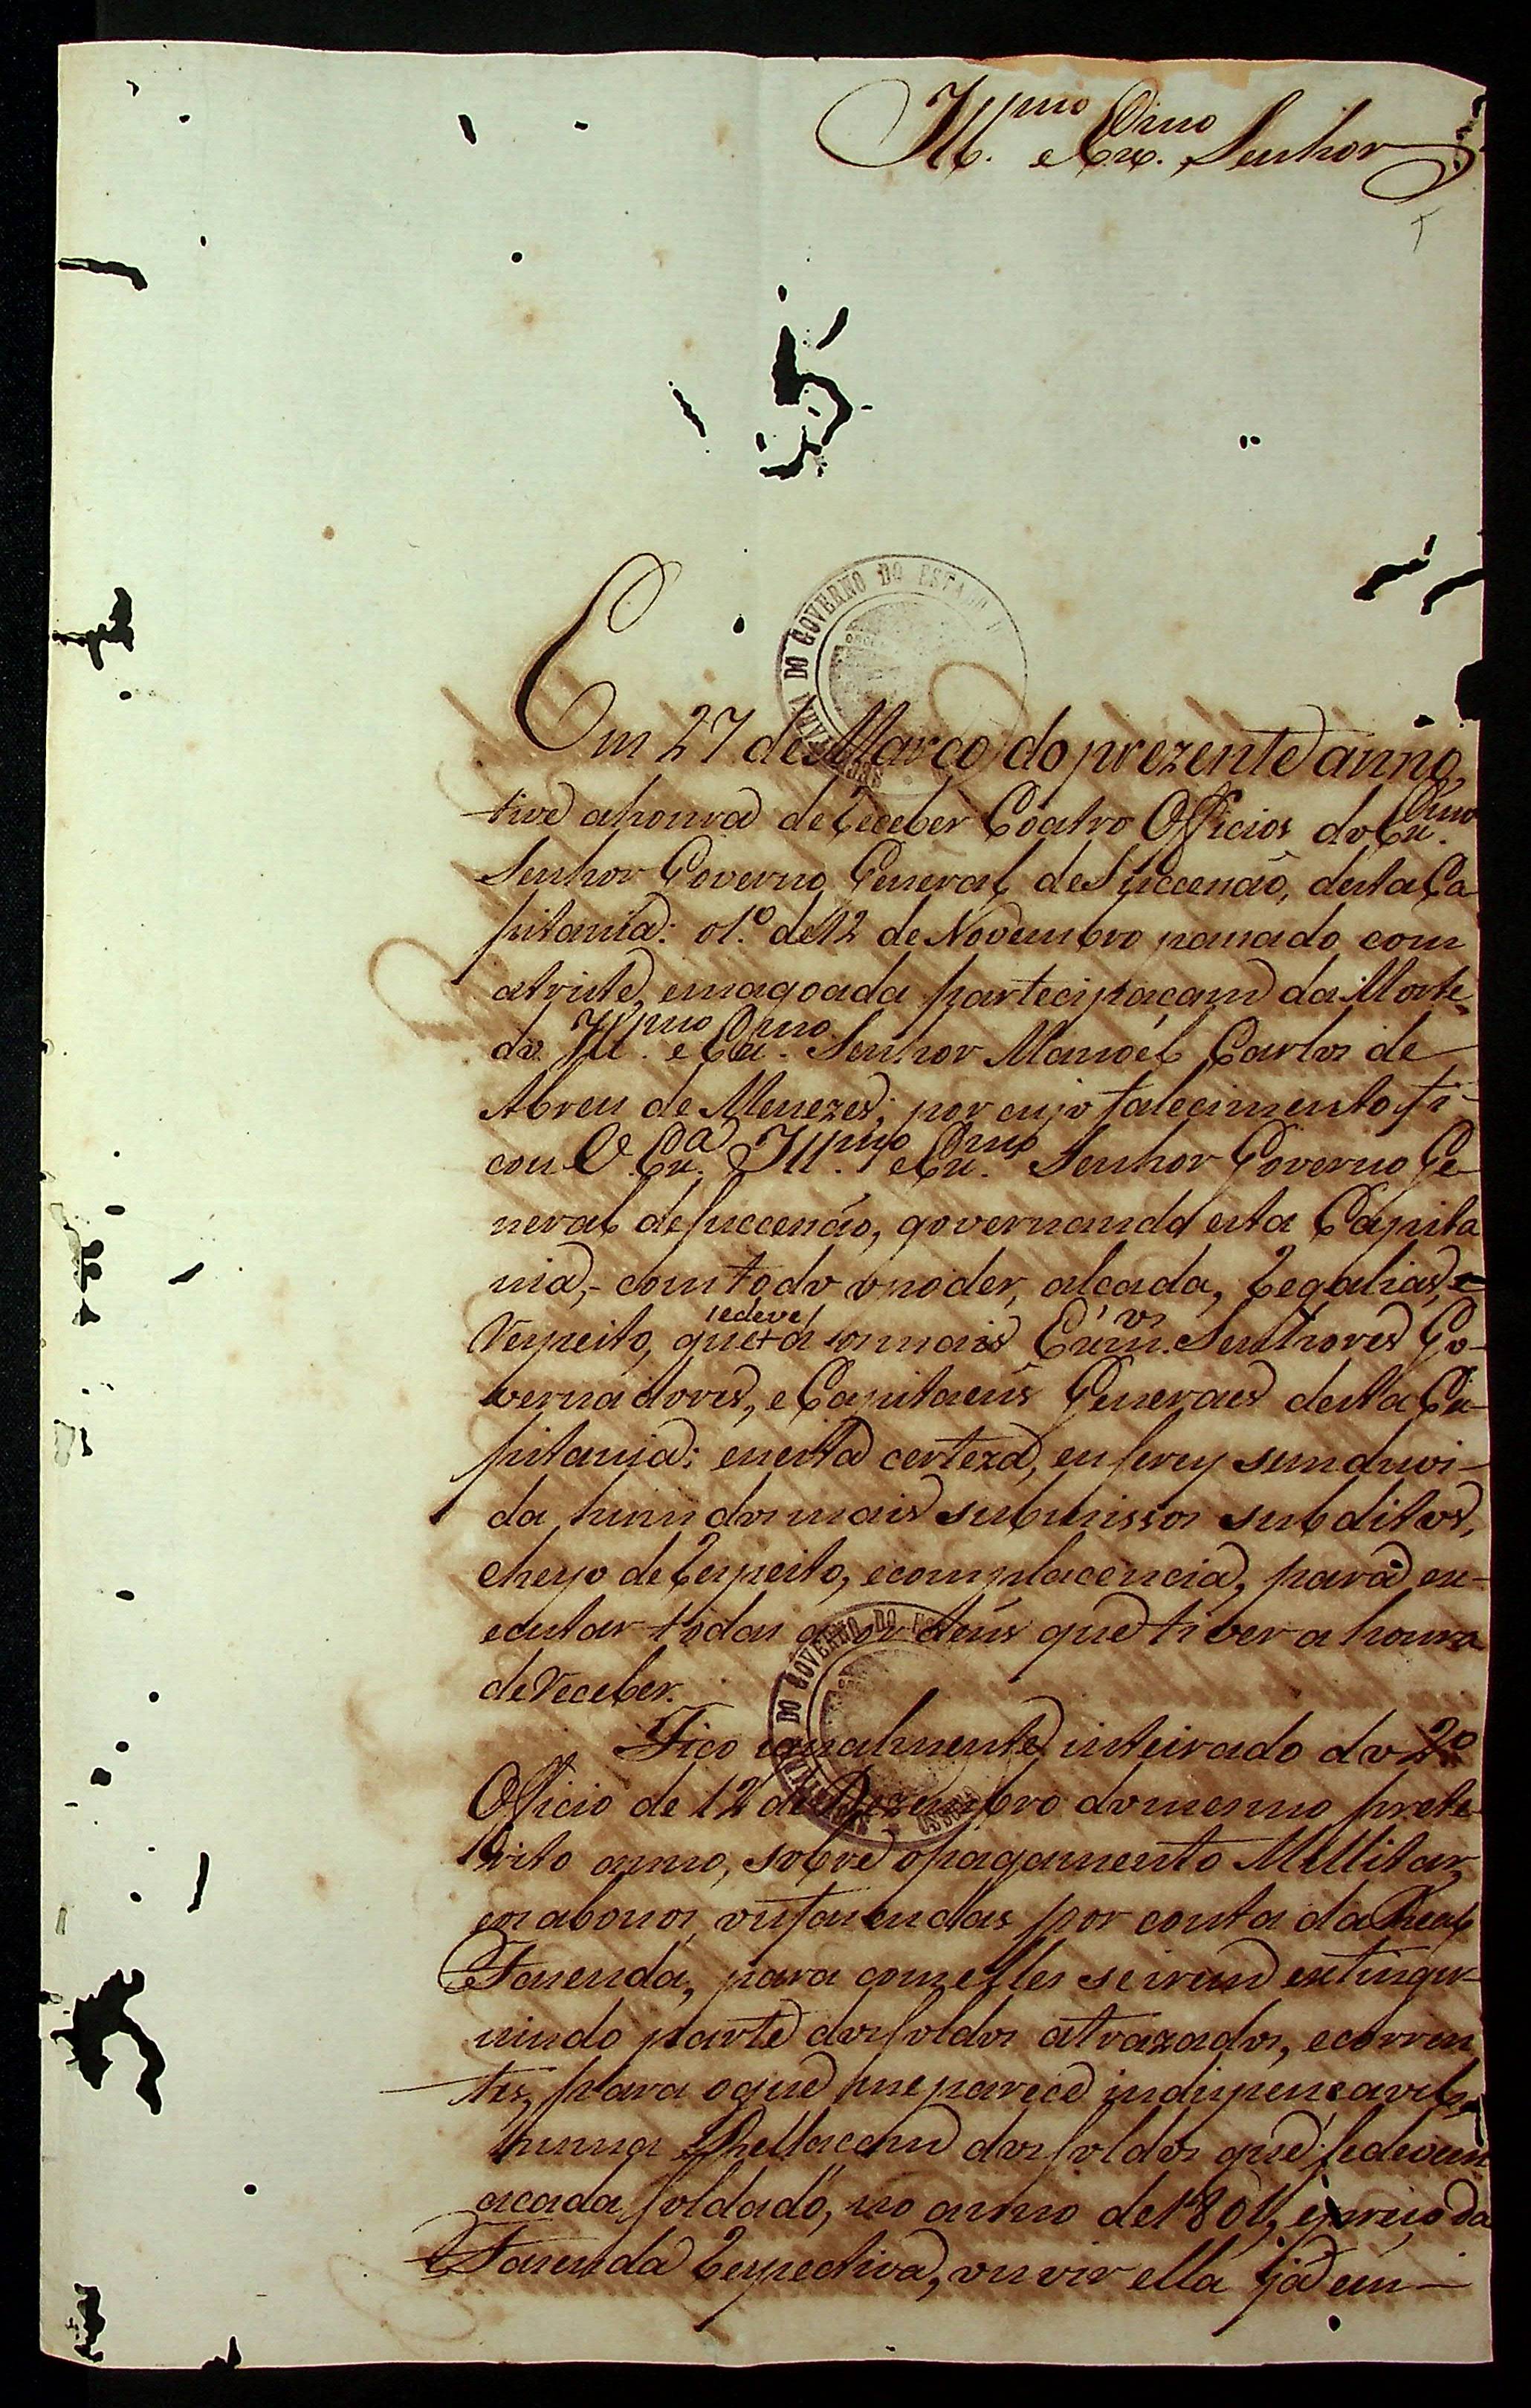 Ill.mo e Ex.mo Senhor
Em 27 de Março do prezente anno,
tive a honra de receber Coatro Officios do Ex.mo
Senhor Governo General de Succenaõ, desta Ca-
pitania: o 1.º de 12 de Novembro passado com
a triste, e magoada partecipaçam da Morte
do Ill.mo e Ex.mo Senhor Manoel Carlos de
Abreu de Menezes; por cujo falecimento fi-
cou V. Ex.a Ill.mo e Ex.mo Senhor Governo Ge-
neral de succenão, governando esta Capita
nia, - com todo o poder, alçada, regalias, e
respeito, que se deve a os mais Exm.os Senhores Go-
vernadores, e Capitaens Generaes desta Ca-
pitania: e nesta certeza, eu serey sem duvi-
da hum dos mais submissos subditos,
cheyo de respeito, e complacencia, para ex-
ecutar todas as ordens que tiver a honra
de receber.
Fico igualmente inteirado do 2º
Officio de 12 de Dezembro do mesmo prete-
rito anno, sobre o pagamento Millitar,
e os abonos, em fazendas por conta da Real
Fazenda, para com elles se irem extingu-
uindo parte dos soldos atrazados, e corren
tes, para o que me parece indispensavel,
huma Rellacam dos soldos que se devem
a cada soldado, no anno de 1801, e preço da
Fazenda respectiva, ou vir ella já em-
SECRETARIA DO GOVERNO DO ESTADO
SECRETARIA DO GOVERNO DO ESTADO